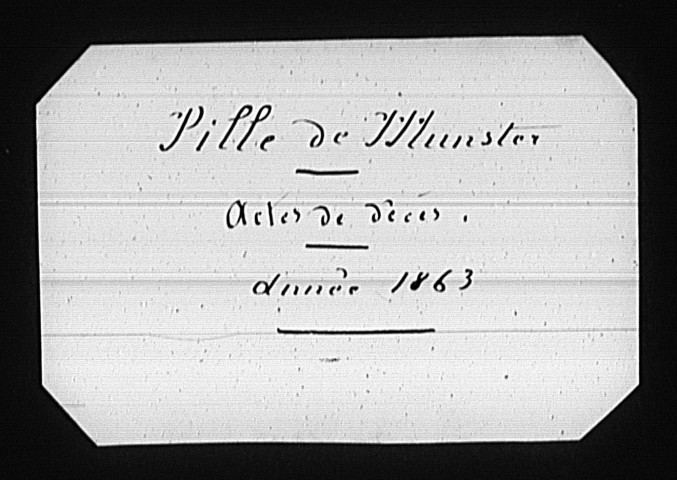 Ville de Munster
Actes de décès.
Année 1863